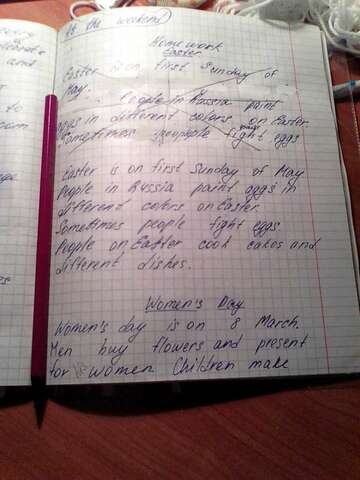 At the weekend
Homework
Easter
Easter is on first Sunday of
May.
People in Russia paint
eggs in different colors on Easter
Sometimes people fight eggs
Easter is on first Sunday of May
People in Russia paint eggs in
different colors on Easter.
Sometimes people fight eggs.
People on Easter cook cakes and
different dishes.
Women's Day
Women's day is on 8 March.
Men buy flowers and present
for women. Children make
and
to